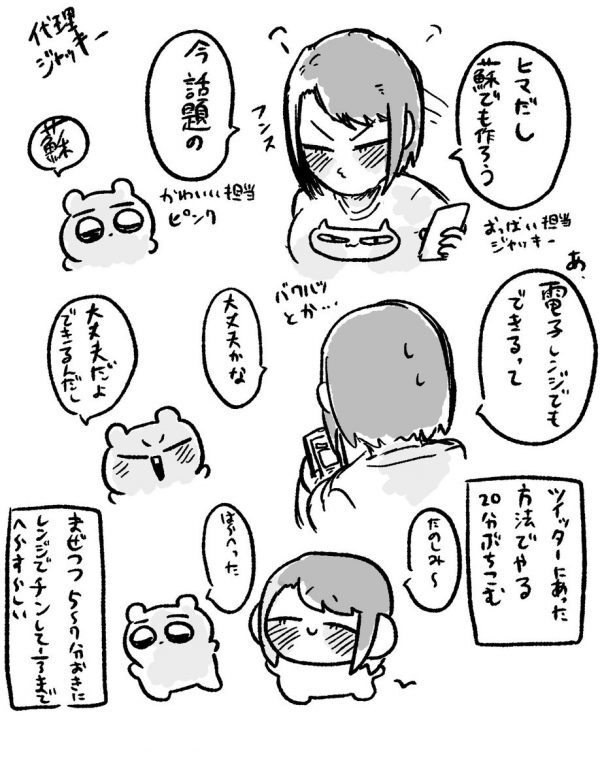 ヒマだし
蘇でも作ろう
今話題の
フンス
おっぱい担当
ジャッキー
代理
ジャッキー
蘇
かわいい担当
ピンク
あ、
電子レンジでも
できるって
バクハツ
とか…
大丈夫かな
大丈夫だよ
できるんだし
ツイッターにあった
方法でやる
20分ぶちこむ
たのしみ〜
はらへった
まぜつつ5〜7分おきに
レンジでチンして